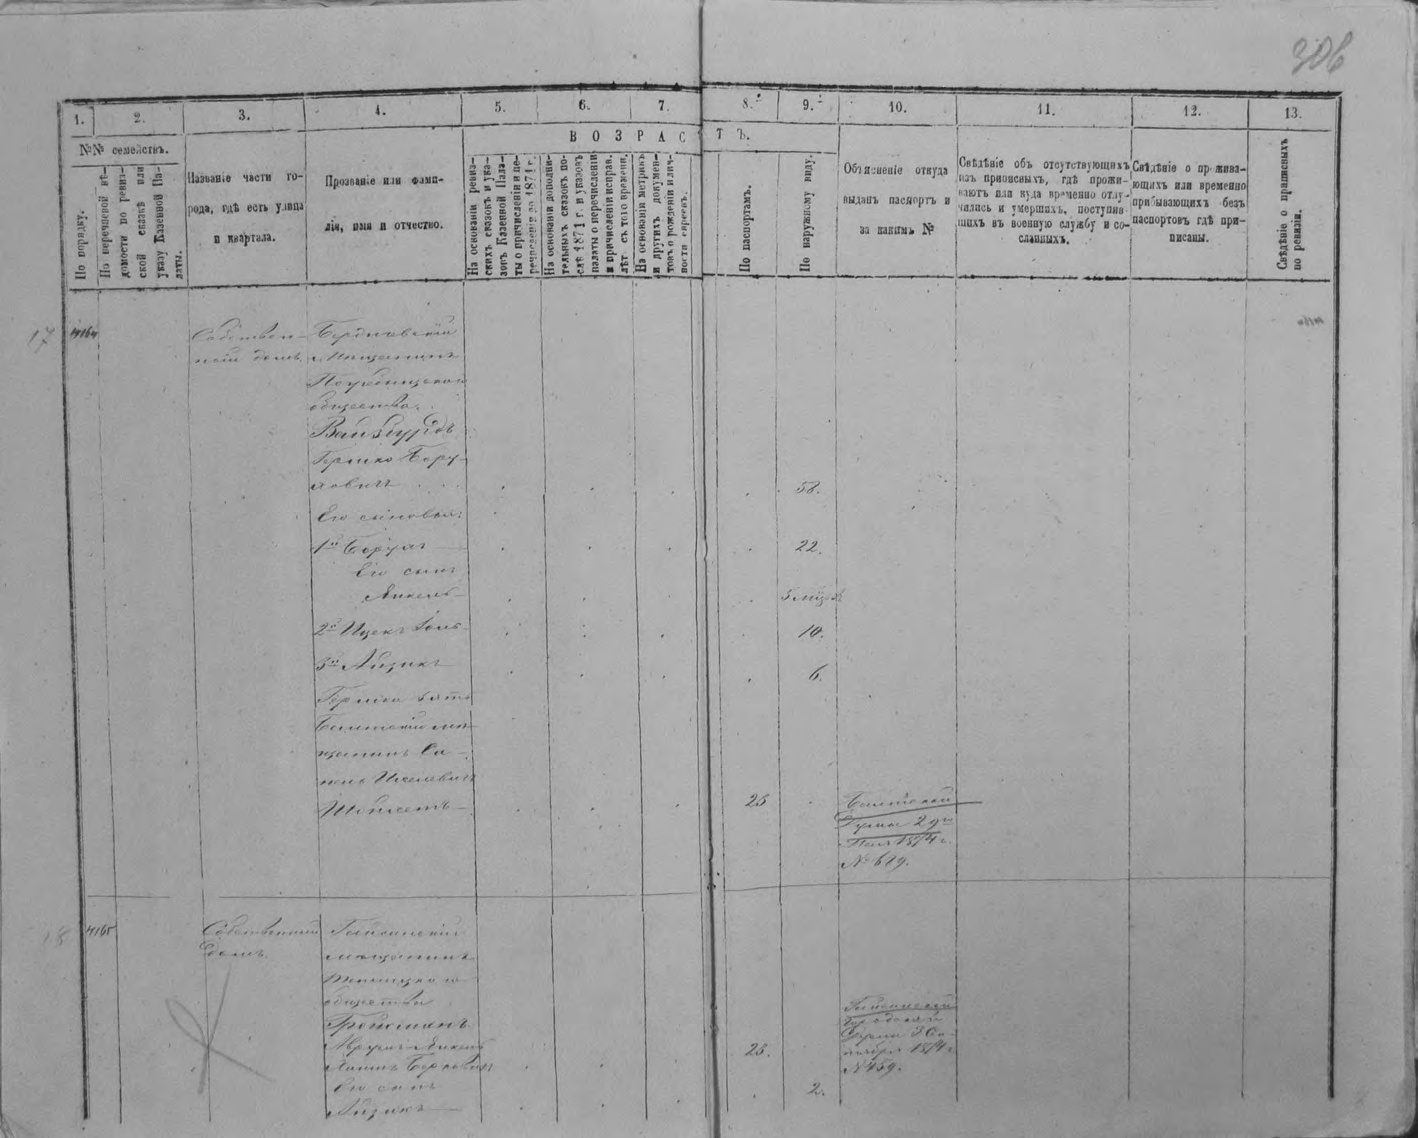 306
1.
2.
3.
4.
5.
6.
7.
8.
9.
10.
11.
12.
13.
№№ семействъ.
По порядку.
По перечневой вѣ-
домости по ревиз-
ской сказкѣ или
указу Казенной Па-
латы.
Названіе части го-
рода, гдѣ есть улица
и кварталъ.
Прозваніе или фами-
лія, имя и отчество.
ВОЗРАСТЪ.
На основаніи ревиз-
скихъ сказокъ и ука-
зовъ Казенной Пала-
ты о причисленіи и пе-
до 1874 г.
На основаніи дополни-
тельныхъ сказокъ по-
слѣ 1871 г. и указовъ
палаты о перечисленіи
и причисленіи исправ.
лѣт. съ того времени.
На основаніи метрикъ
и другихъ докумен-
товъ о рожденіи и лич-
ности евреевъ.
По паспортамъ.
По наружному виду.
Объясненіе откуда
выданъ паспортъ и
за какимъ №
Свѣдѣніе объ отсутствующихъ
изъ приписныхъ, гдѣ прожи-
ваютъ или куда временно отлу-
чились и умершихъ, поступив-
шихъ въ военную службу и со-
сланныхъ.
Свѣдѣніе о прожива-
ющихъ или временно
прибывающихъ безъ
паспортовъ гдѣ при-
писаны.
Свѣдѣніе о приписныхъ
по ревизіи.
17
4164
Собствен-
ный домъ
Бердичевскій
Мѣщанинъ
Погребищскаго
общества
Вайзбурдъ
Гершко Бору-
ховичъ
58.
Его сыновья:
1й Борухъ
22.
Его сынъ
Янкель
5 мѣся
2й Ицекъ Іоль
10.
3й Айзикъ
6.
Гершка зять
Балтскій мѣ-
щанинъ
Шейметъ
25
Балтской
Думы 2 дня
1874 г.
№ 619.
18
4165
Собственный
домъ.
Гайсинскій
мѣщанинъ
общества
Гройсманъ
Аврумъ-Янкель
Берковичъ
23.
Его сынъ
Айзикъ
2.
Гайсинской
Городской
Думы 3 Се-
нтября 1874 г.
№ 459.